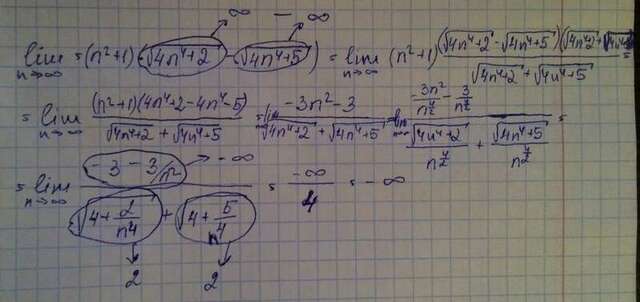 ∞ − ∞
lim n→∞ = (n²+1)(√(4n⁴+2) − √(4n⁴+5)) = lim n→∞ (n²+1) (√(4n⁴+2) − √(4n⁴+5))(√(4n⁴+2) + √(4n⁴+5)) / (√(4n⁴+2) + √(4n⁴+5)) =
= lim n→∞ (n²+1)(4n⁴+2−4n⁴−5) / (√(4n⁴+2) + √(4n⁴+5)) = lim (−3n²−3) / (√(4n⁴+2) + √(4n⁴+5)) = lim n→∞ (−3n²/n^(4/2) − 3/n^(4/2)) / (√(4n⁴+2)/n^(4/2) + √(4n⁴+5)/n^(4/2)) =
= lim n→∞ (−3 − 3/n²) → −∞ / (√(4 + 2/n⁴) + √(4 + 5/n⁴)) = −∞/4 = −∞
2 2